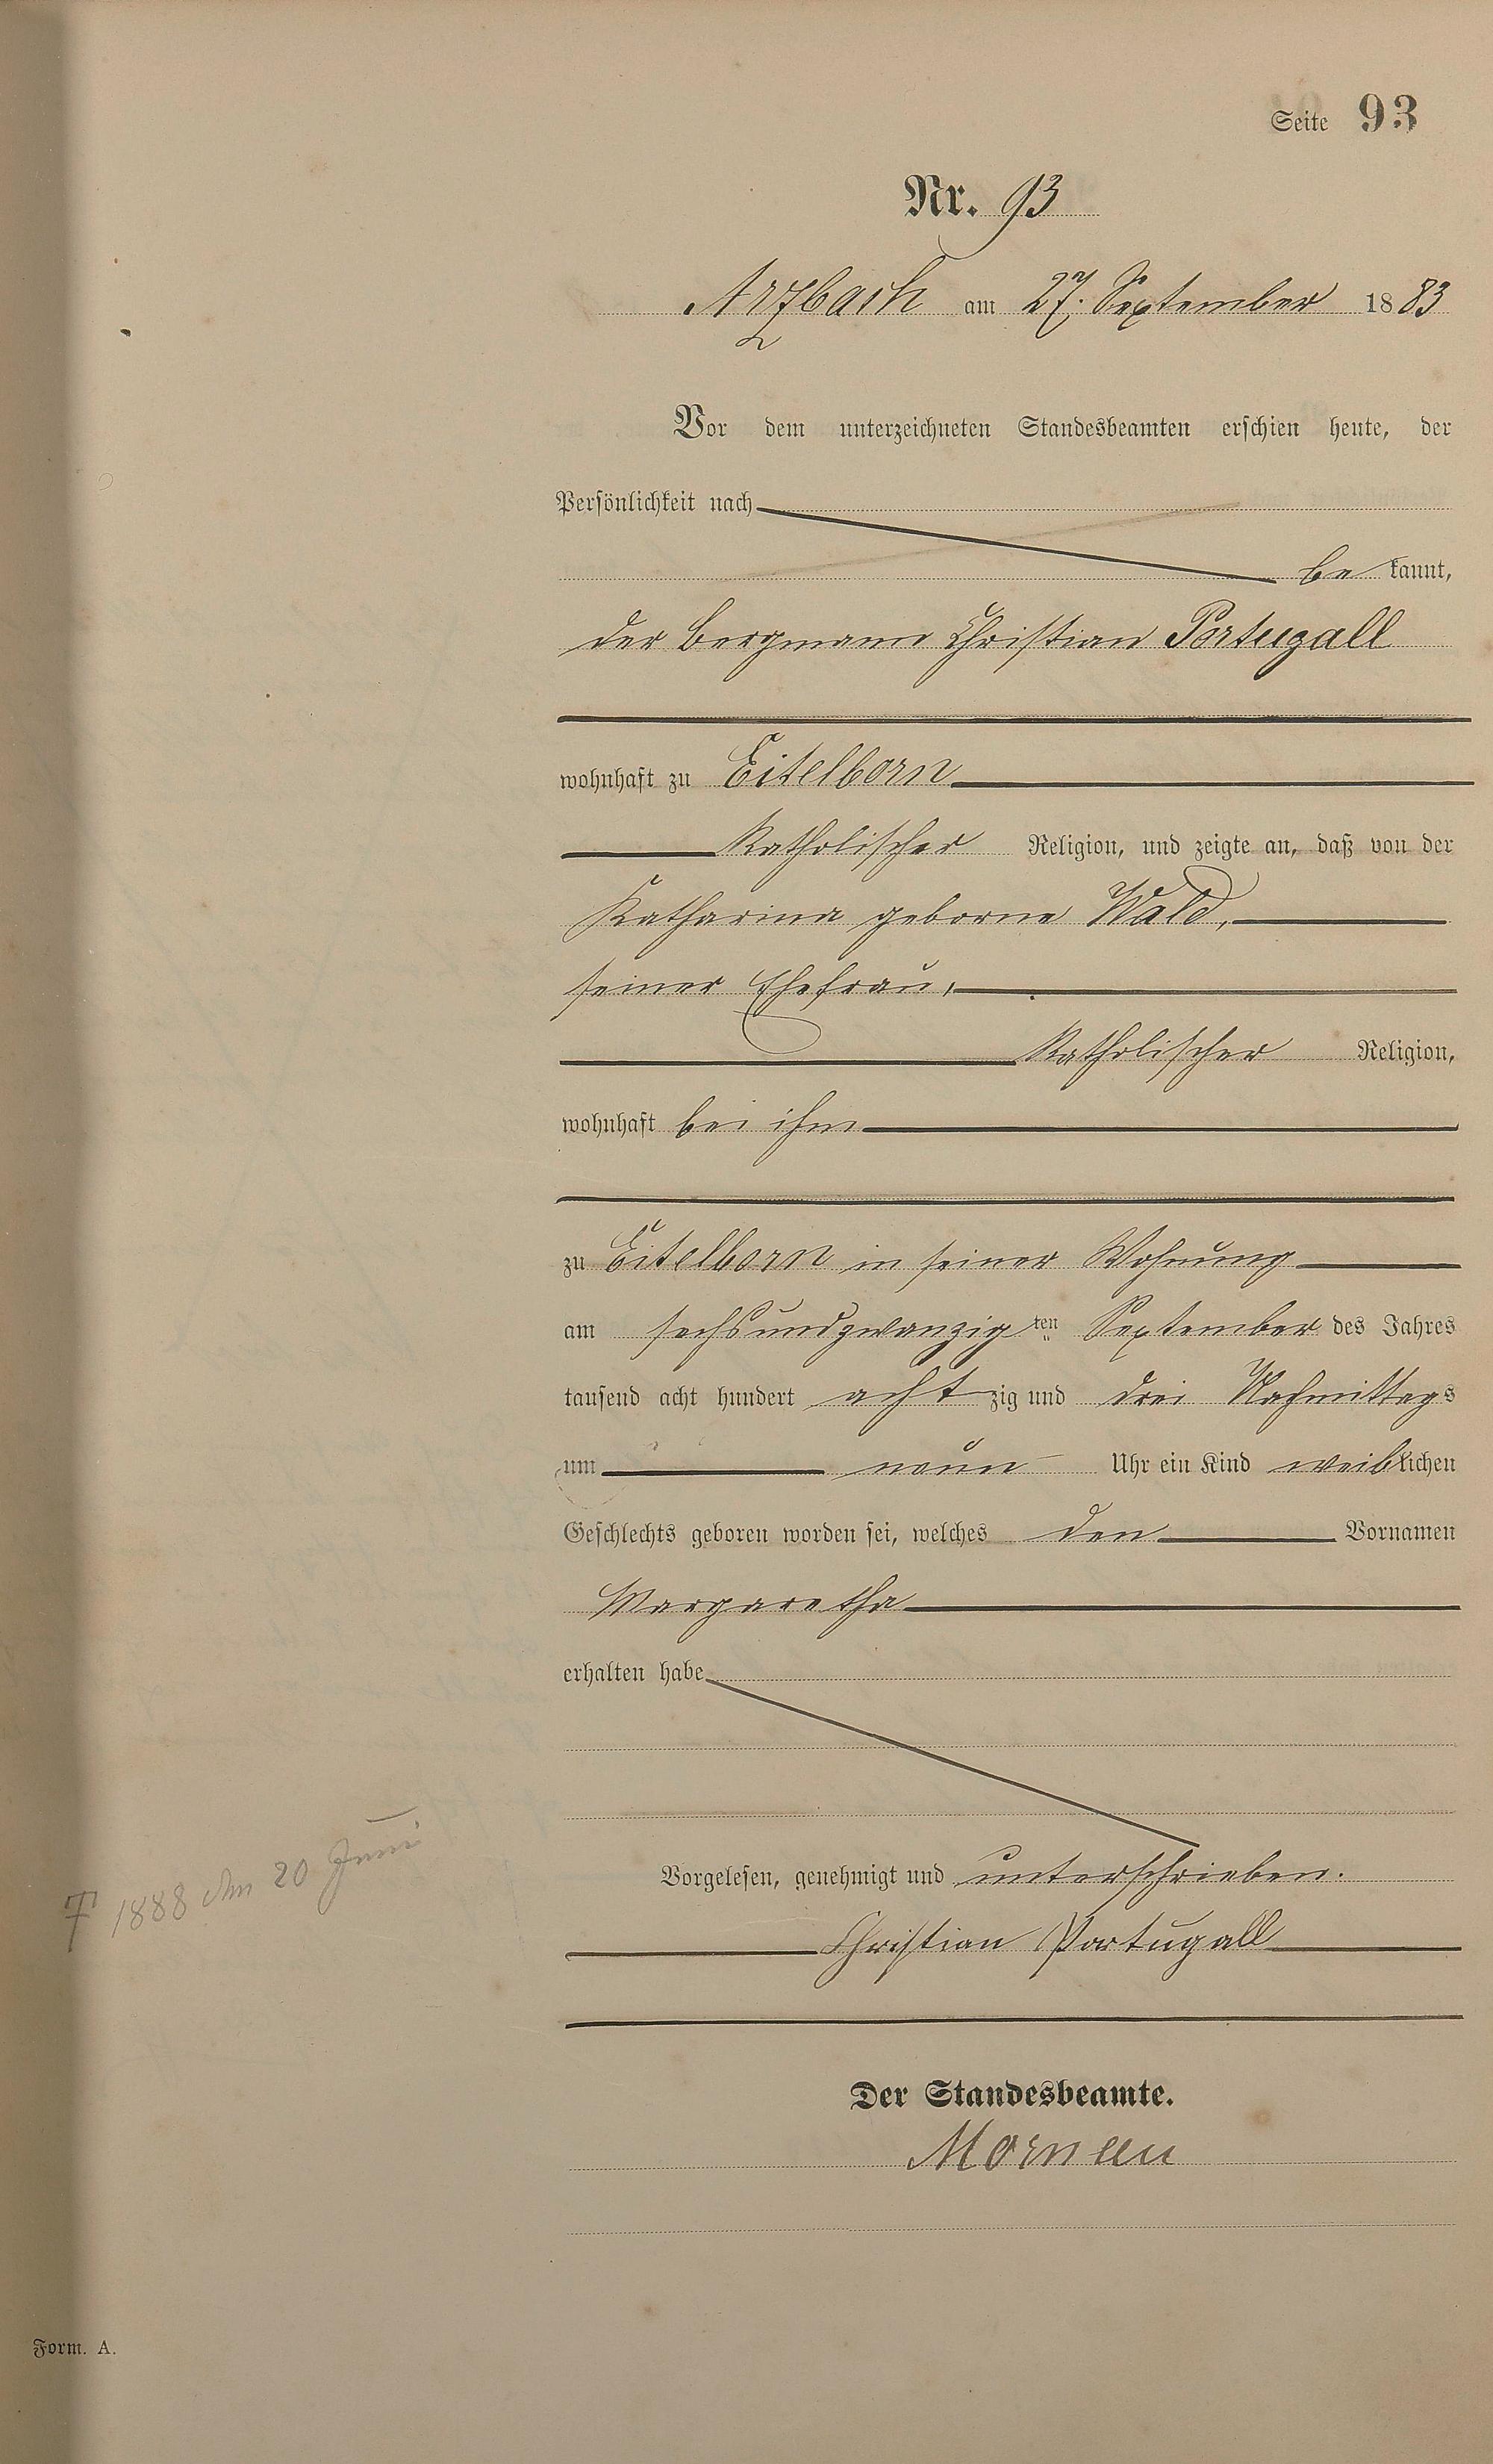 Seite 93
Nr. 93
Arzbach am 27. September 1883
Vor dem unterzeichneten Standesbeamten erschien heute, der
Persönlichkeit nach
be kannt,
der Bergmann Christian Portugall
wohnhaft zu Eitelborn
Katholischer Religion, und zeigte an, daß von der
Katharina geborne Wald,
seiner Ehefrau,
Katholischer Religion,
wohnhaft bei ihm
zu Eitelborn in seiner Wohnung
am sechsundzwanzig ten September des Jahres
tausend acht hundert acht zig und drei Nachmittags
um neun Uhr ein Kind weiblichen
Geschlechts geboren worden sei, welches den Vornamen
Margaretha
erhalten habe
† 1888 den 20 Juni
Vorgelesen, genehmigt und unterschrieben.
Christian Portugall
Der Standesbeamte.
Form. A.